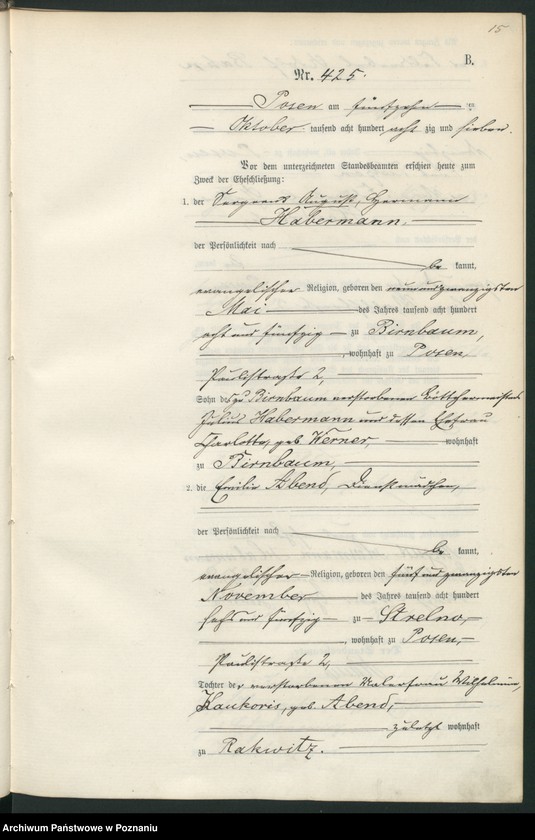 15
B.
Nr. 425.
Posen am fünfzehn ten
Oktober tausend acht hundert acht zig und sieben.
Vor dem unterzeichneten Standesbeamten erschien heute zum
Zweck der Eheschließung:
1. der Sergeant August, Hermann
Habermann,
der Persönlichkeit nach
be kannt,
evangelischer Religion, geboren den neunundzwanzigsten
Mai des Jahres tausend acht hundert
acht und fünfzig zu Birnbaum,
, wohnhaft zu Posen,
Paulistraße 2,
Sohn des zu Birnbaum verstorbenen Böttchermeisters
Julius Habermann und dessen Ehefrau
Charlotte, geb. Werner, wohnhaft
zu Birnbaum,
2. die Emilie Abend, Dienstmädchen,
der Persönlichkeit nach
be kannt,
evangelischer Religion, geboren den fünf und zwanzigsten
November des Jahres tausend acht hundert
sechs und fünfzig zu Strelno,
, wohnhaft zu Posen,
Paulistraße 2,
Tochter der verstorbenen Malerfrau Wilhelmine,
geb. Abend,
zuletzt wohnhaft
zu Rakwitz.
Archiwum Państwowe w Poznaniu